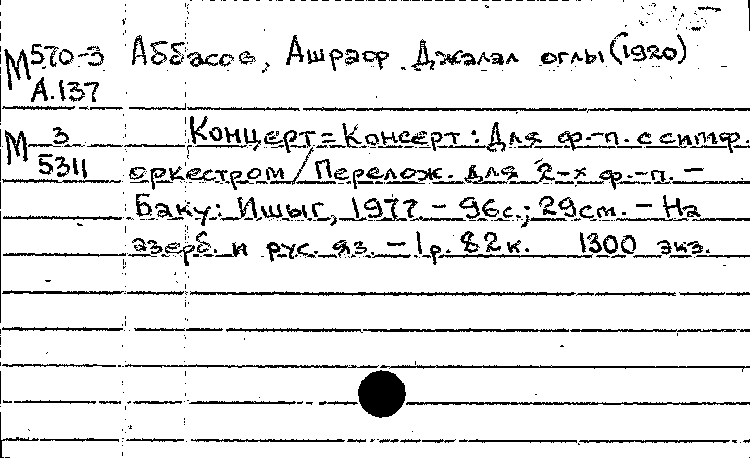 М 570-3 Аббасов, Ашраф Джалал оглы (1920)
А.137
М 3 Концерт = Консерт : Для ф.-п. с симф.
5311 оркестром / Перелож. для 2-х ф.-п. —
Баку: Ишыг, 1977 - 96с.; 29см. - На
азерб. и рус. яз. - 1р. 82к. 1300 экз.